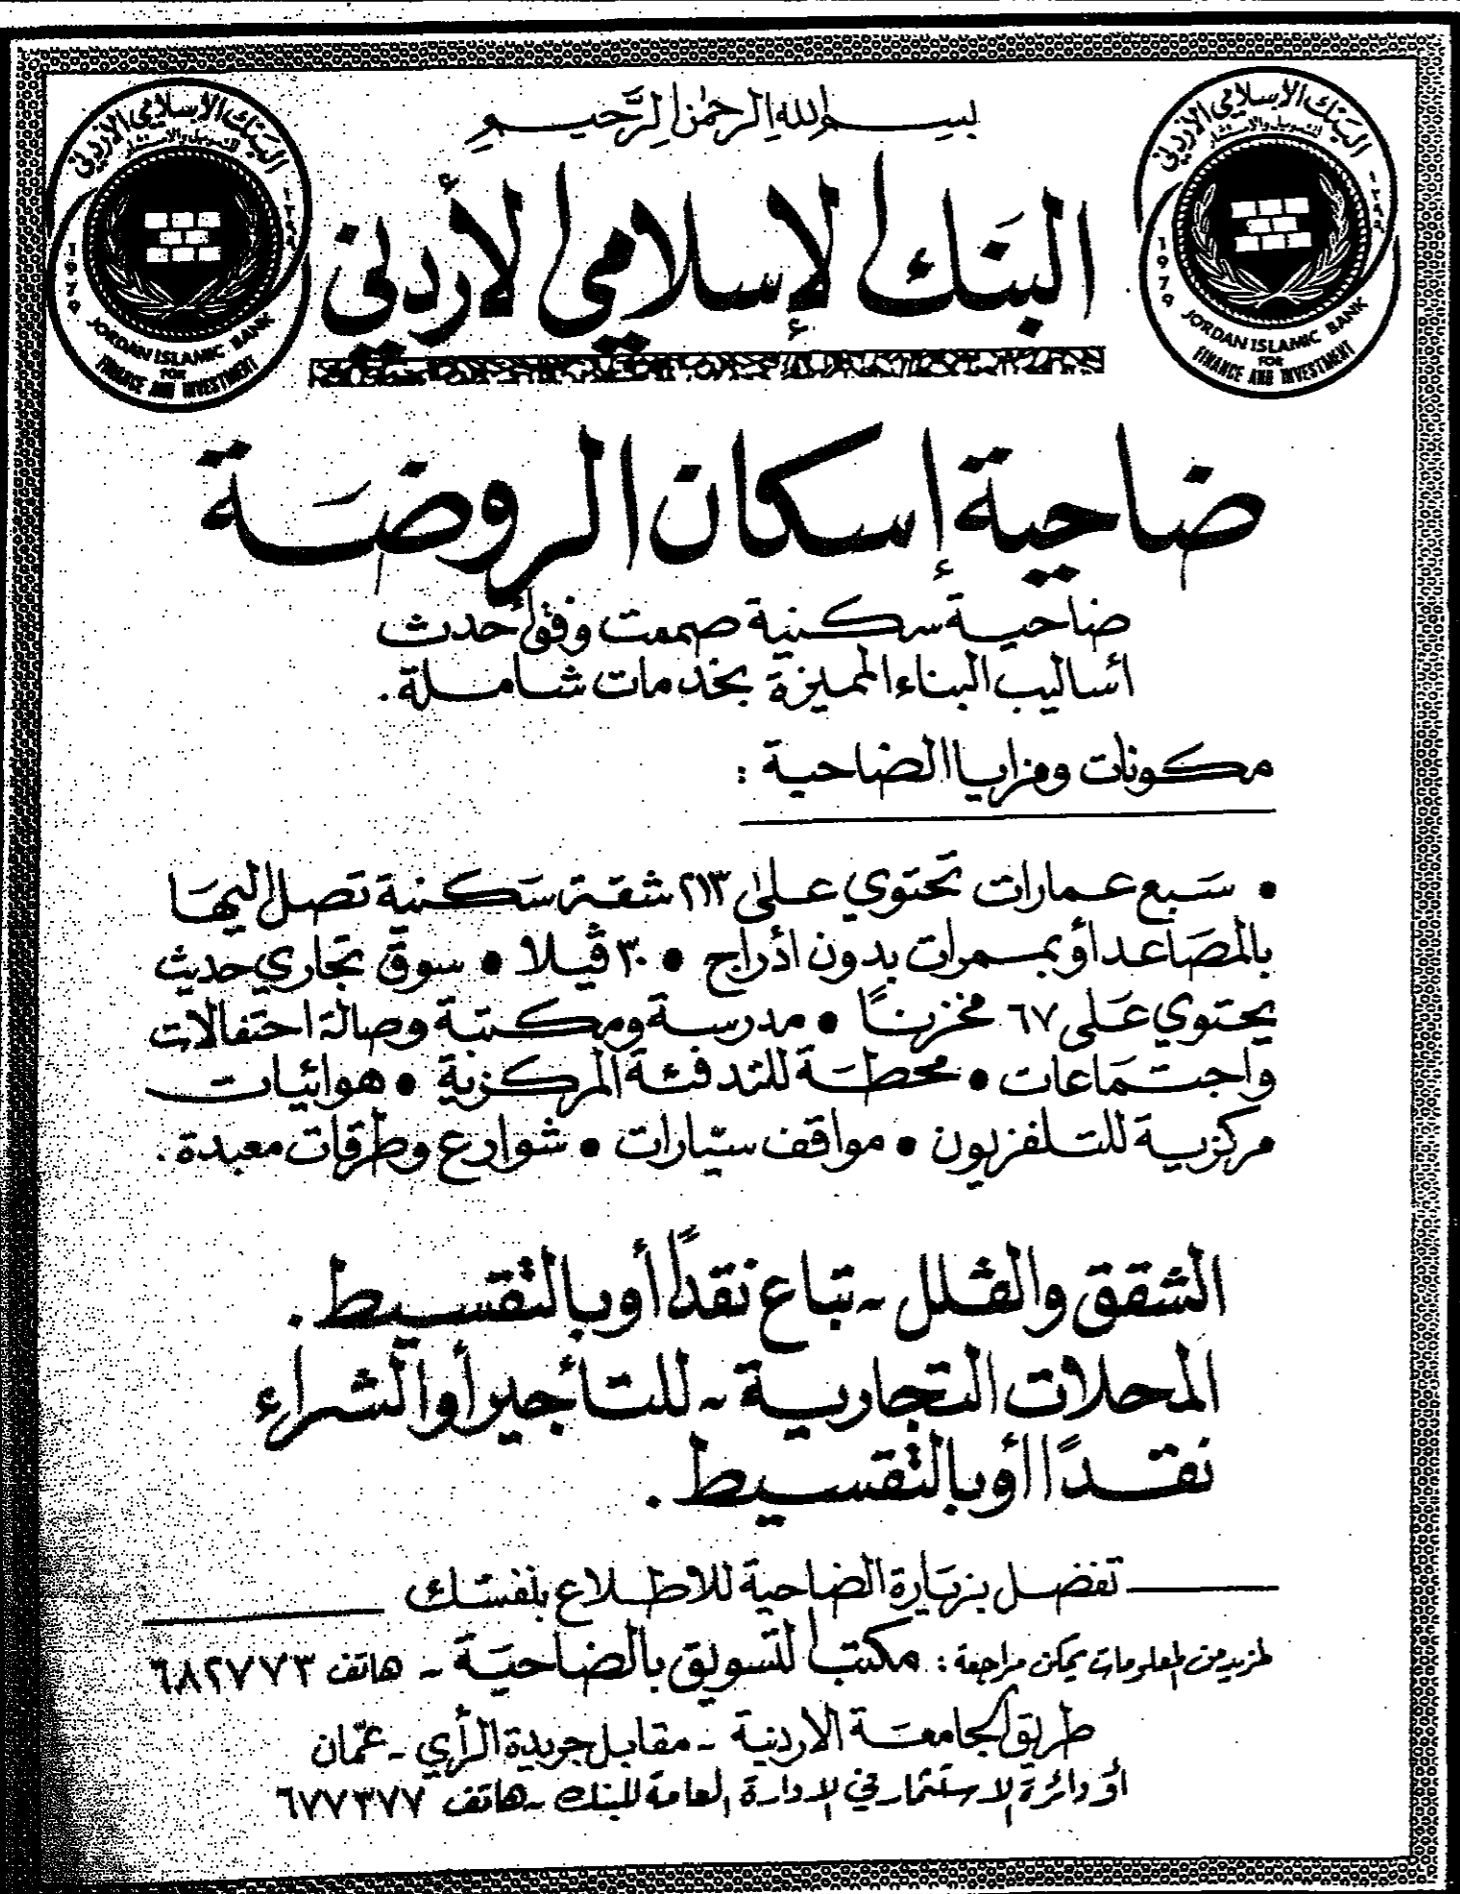 بسم الله الرحمن الرحيم
البنك الإسلامي الأردني
البنك الإسلامي الأردني
للتمويل والاستثمار
1979
JORDAN ISLAMIC BANK
FOR
FINANCE AND INVESTMENT
البنك الإسلامي الأردني
للتمويل والاستثمار
1979
JORDAN ISLAMIC BANK
FOR
FINANCE AND INVESTMENT
ضاحية إسكان الروضة
ضاحية سكنية صممت وفق أحدث
أساليب البناء المميزة بخدمات شاملة.
مكونات ومزايا الضاحية :
• سبع عمارات تحتوي على ٢١٣ شقة سكنية تصل اليها
بالمصاعد أو بممرات بدون أدراج • ٣٠ ڤيلا • سوق تجاري حديث
يحتوي على ٦٧ مخزنًا • مدرسة ومكتبة وصالة احتفالات
واجتماعات • محطة للتدفئة المركزية • هوائيات
مركزية للتلفزيون • مواقف سيارات • شوارع وطرقات معبدة .
الشقق والڤلل - تباع نقدًا أو بالتقسيط .
المحلات التجارية - للتأجير أو الشراء
نقدًا أو بالتقسيط .
تفضل بزيارة الضاحية للاطلاع بنفسك
لمزيد من المعلومات يمكن مراجعة : مكتب التسويق بالضاحية - هاتف ٦٨٢٧٧٣
طريق الجامعة الاردنية - مقابل جريدة الرأي - عمّان
أو دائرة الاستثمار في الادارة العامة للبنك - هاتف ٦٧٧٣٧٧